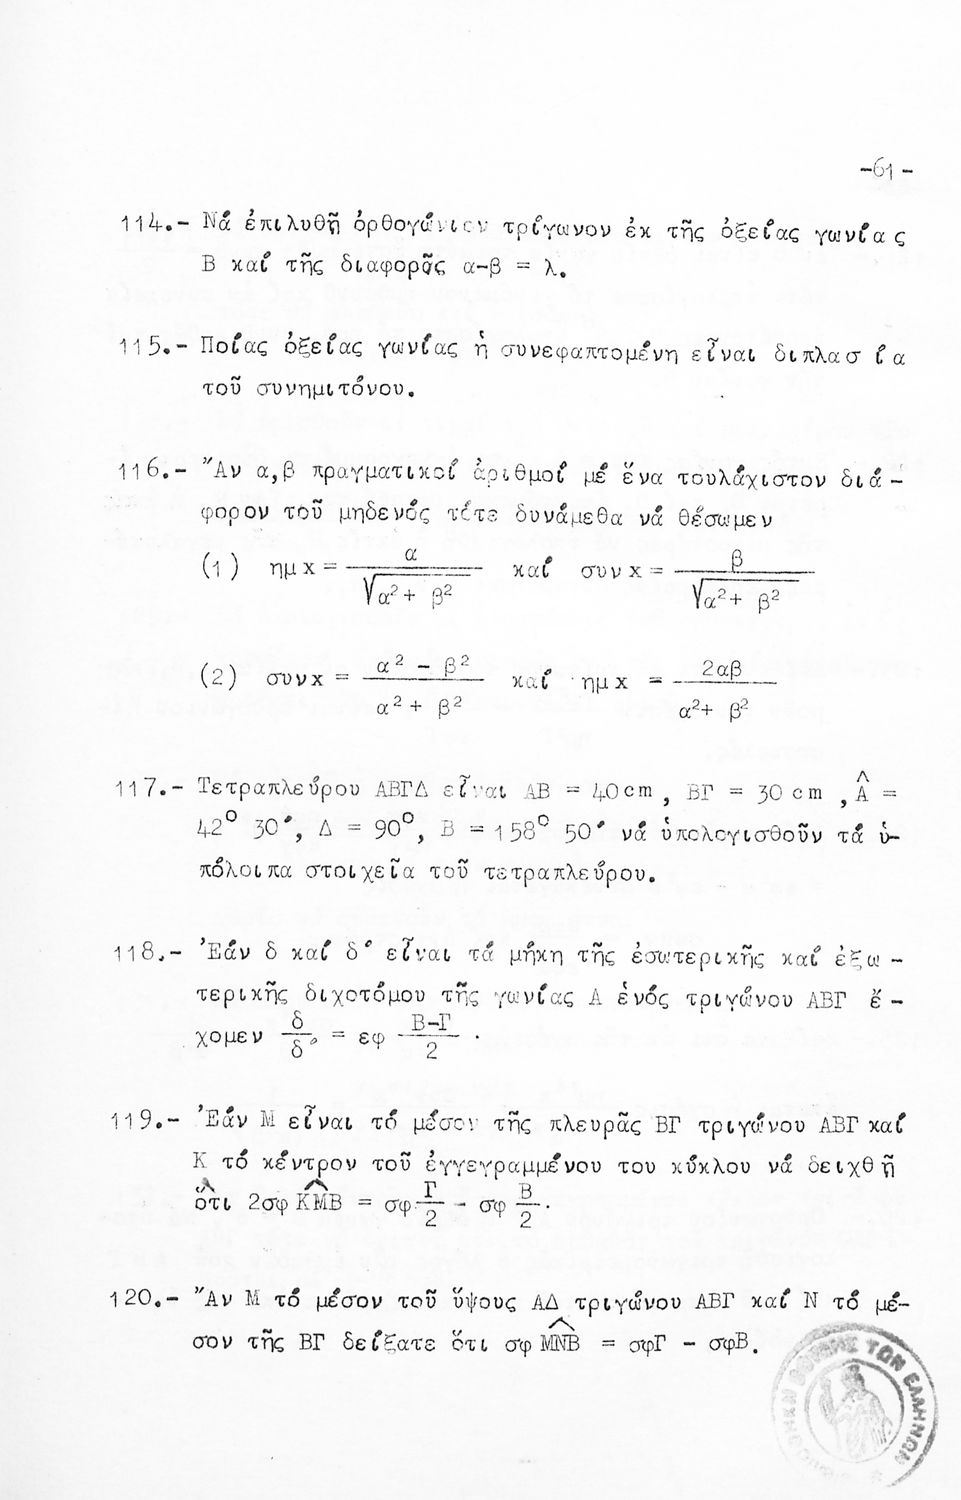 -61-
114.- Νά ἐπιλυθῇ ὀρθογώνιον τρίγωνον ἐκ τῆς ὀξείας γωνίας
Β καί τῆς διαφορᾶς α-β = λ.
115.- Ποίας ὀξείας γωνίας ἡ συνεφαπτομένη εἶναι διπλασία
τοῦ συνημιτόνου.
116.- Ἄν α,β πραγματικοί ἀριθμοί μέ ἕνα τουλάχιστον διά-
φορον τοῦ μηδενός τότε δυνάμεθα νά θέσωμεν
(1) ημx = α/√α²+ β² καί συνx = β/√α²+ β²
(2) συνx = α² - β²/α² + β² καί ημx = 2αβ/α²+ β²
117.- Τετραπλεύρου ΑΒΓΔ εἶναι ΑΒ = 40cm, ΒΓ = 30cm, Â =
42° 30′, Δ = 90°, Β = 158° 50′ νά ὑπολογισθοῦν τά ὑ-
πόλοιπα στοιχεῖα τοῦ τετραπλεύρου.
118.- Ἐάν δ καί δ′ εἶναι τά μήκη τῆς ἐσωτερικῆς καί ἐξω-
τερικῆς διχοτόμου τῆς γωνίας Α ἑνός τριγώνου ΑΒΓ ἔ-
χομεν δ/δ′ = εφ Β-Γ/2 .
119.- Ἐάν Μ εἶναι τό μέσον τῆς πλευρᾶς ΒΓ τριγώνου ΑΒΓ καί
Κ τό κέντρον τοῦ ἐγγεγραμμένου του κύκλου νά δειχθῇ
ὅτι 2σφ ΚΜΒ = σφ Γ/2 - σφ Β/2 .
120.- Ἄν Μ τό μέσον τοῦ ὕψους ΑΔ τριγώνου ΑΒΓ καί Ν τό μέ-
σον τῆς ΒΓ δείξατε ὅτι σφ ΜΝΒ = σφΓ - σφΒ.
ΤΩΝ ΕΛΛΗΝΩΝ